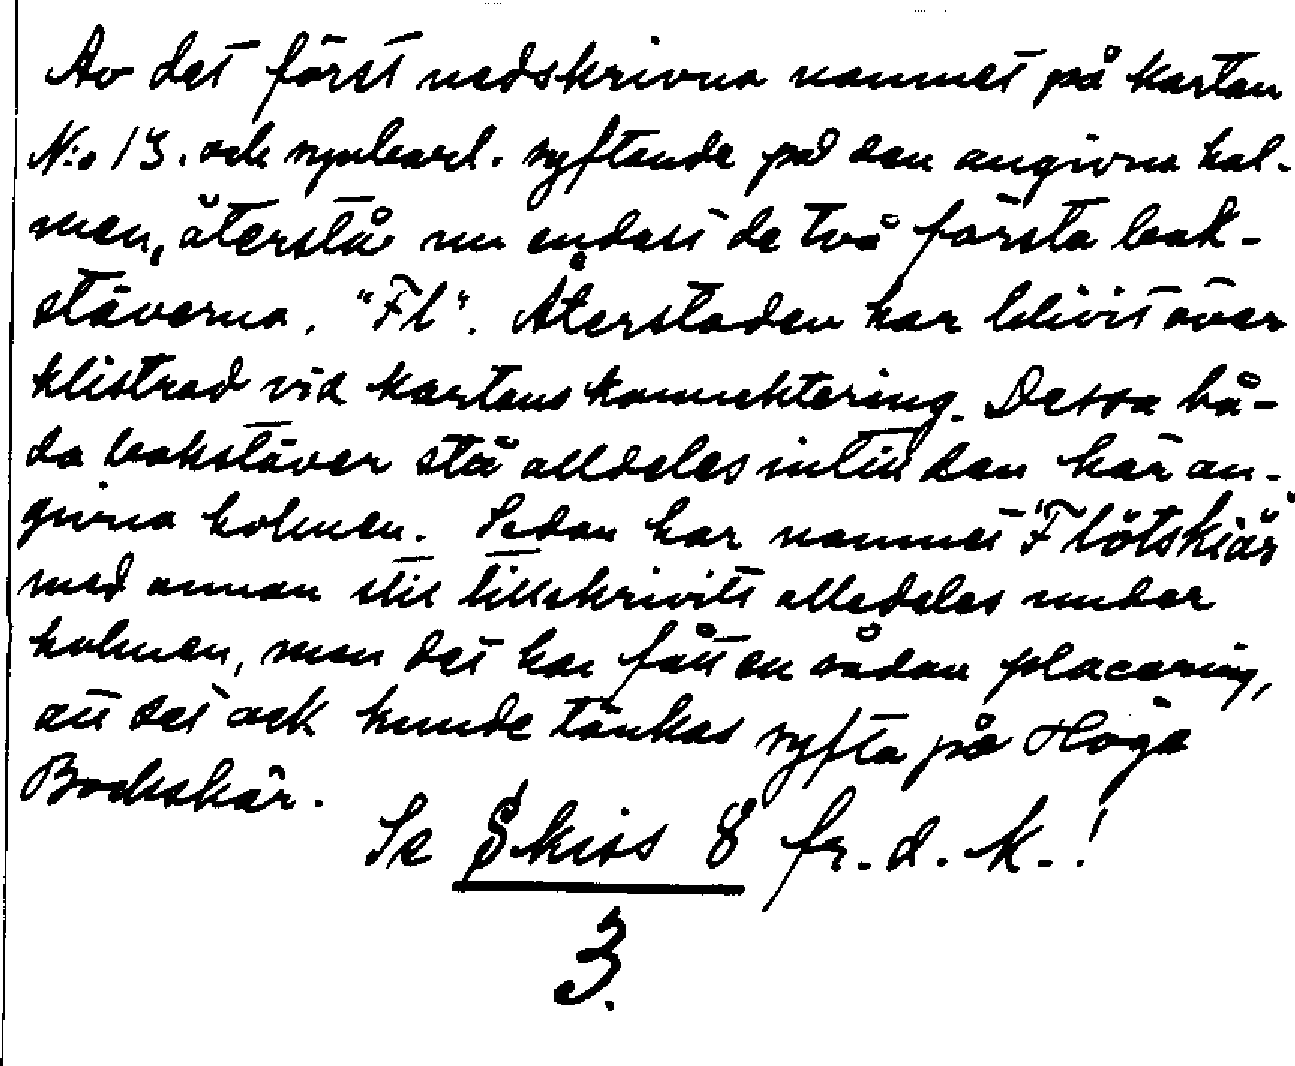 Av det först nedskrivna namnet på kartan
N:o 13. och synbarl. syftande på den angivna hol-
men, återstå nu endast de två första bok-
stäverna, "Fl". Återstoden har blivit över
klistrad vid kartans konnektering. Dessa bå-
da bokstäver stå alldeles intill den här an-
givna holmen. Sedan har namnet "Flötskiär"
med annan stil tillskrivits alldeles under
holmen, men det har fått en sådan placering,
att det ock kunde tänkas syfta på Höga
Bockskär.
Se Skiss 8 fr. d. k.!
3.